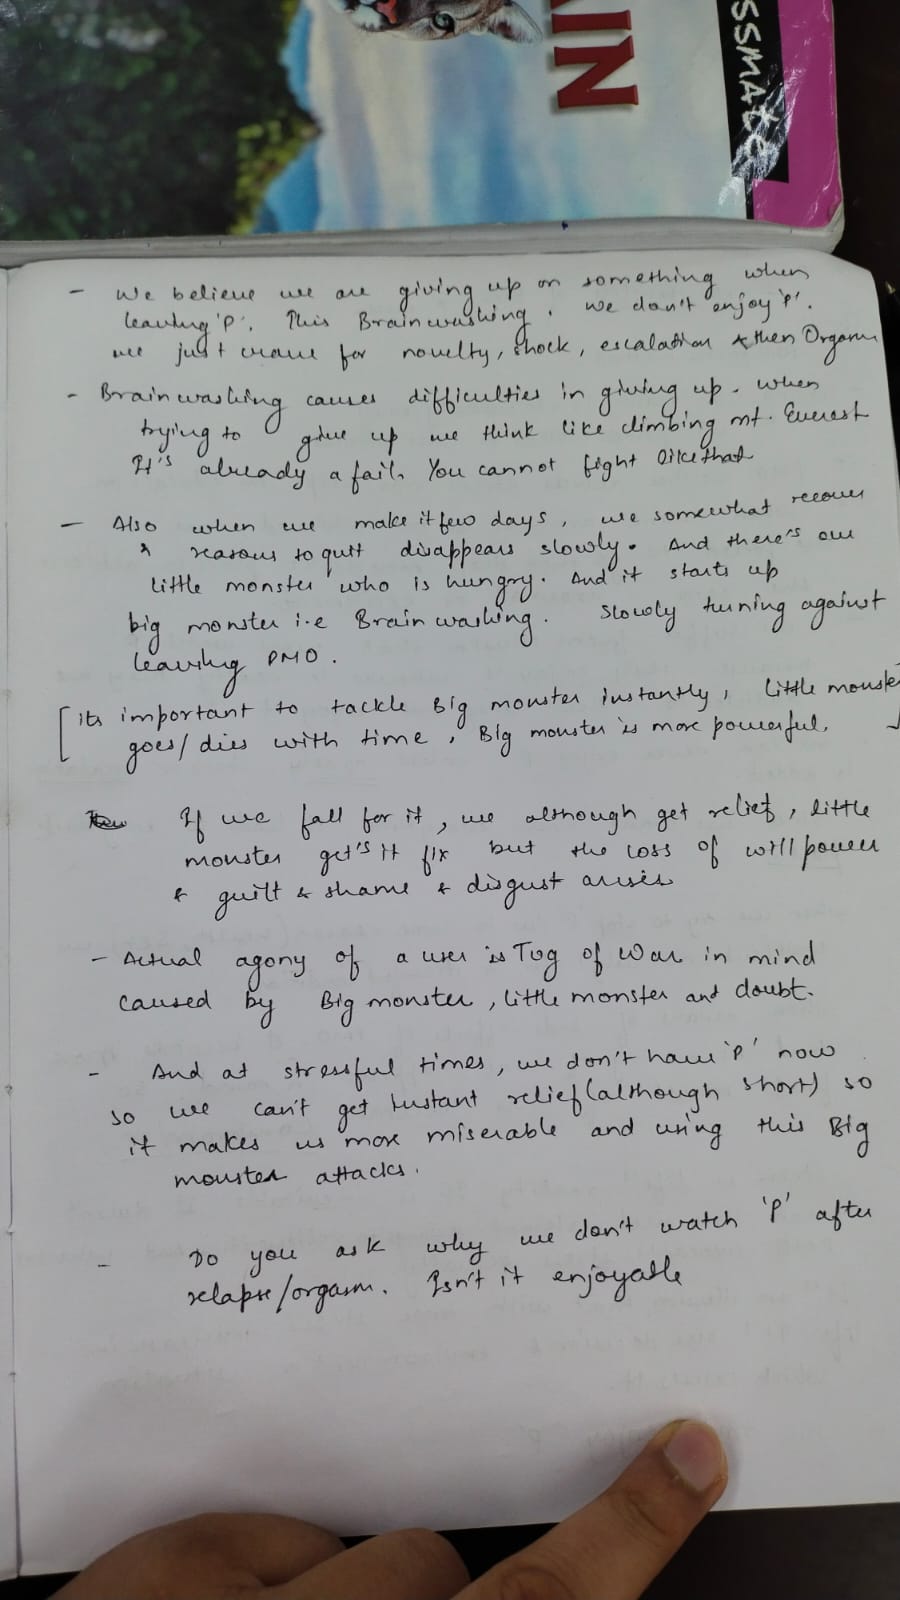 AIN
ssmate
- We believe we are giving up on something when
leaving 'P'. This Brainwashing. We don't enjoy 'P'.
we just crave for novelty, shock, escalation & then Orgasm
- Brainwashing causes difficulties in giving up. when
trying to give up we think like climbing mt. Everest
It's already a fail. You cannot fight like that
- Also when we make it few days, we somewhat recover
& reasons to quit disappears slowly. And there's our
little monster who is hungry. And it starts up
big monster i.e Brainwashing. Slowly turning against
leaving PMO.
[its important to tackle Big monster instantly, little monster
goes/dies with time, Big monster is more powerful. ]
If we fall for it, we although get relief, little
monster get's it fix but the loss of will power
& guilt & shame & disgust arises
- Actual agony of a user is Tug of War in mind
caused by Big monster, little monster and doubt.
- And at stressful times, we don't have 'P' now
so we can't get Instant relief (although short) so
it makes us more miserable and using this Big
monster attacks.
- Do you ask why we don't watch 'P' after
relapse/orgasm. Isn't it enjoyable